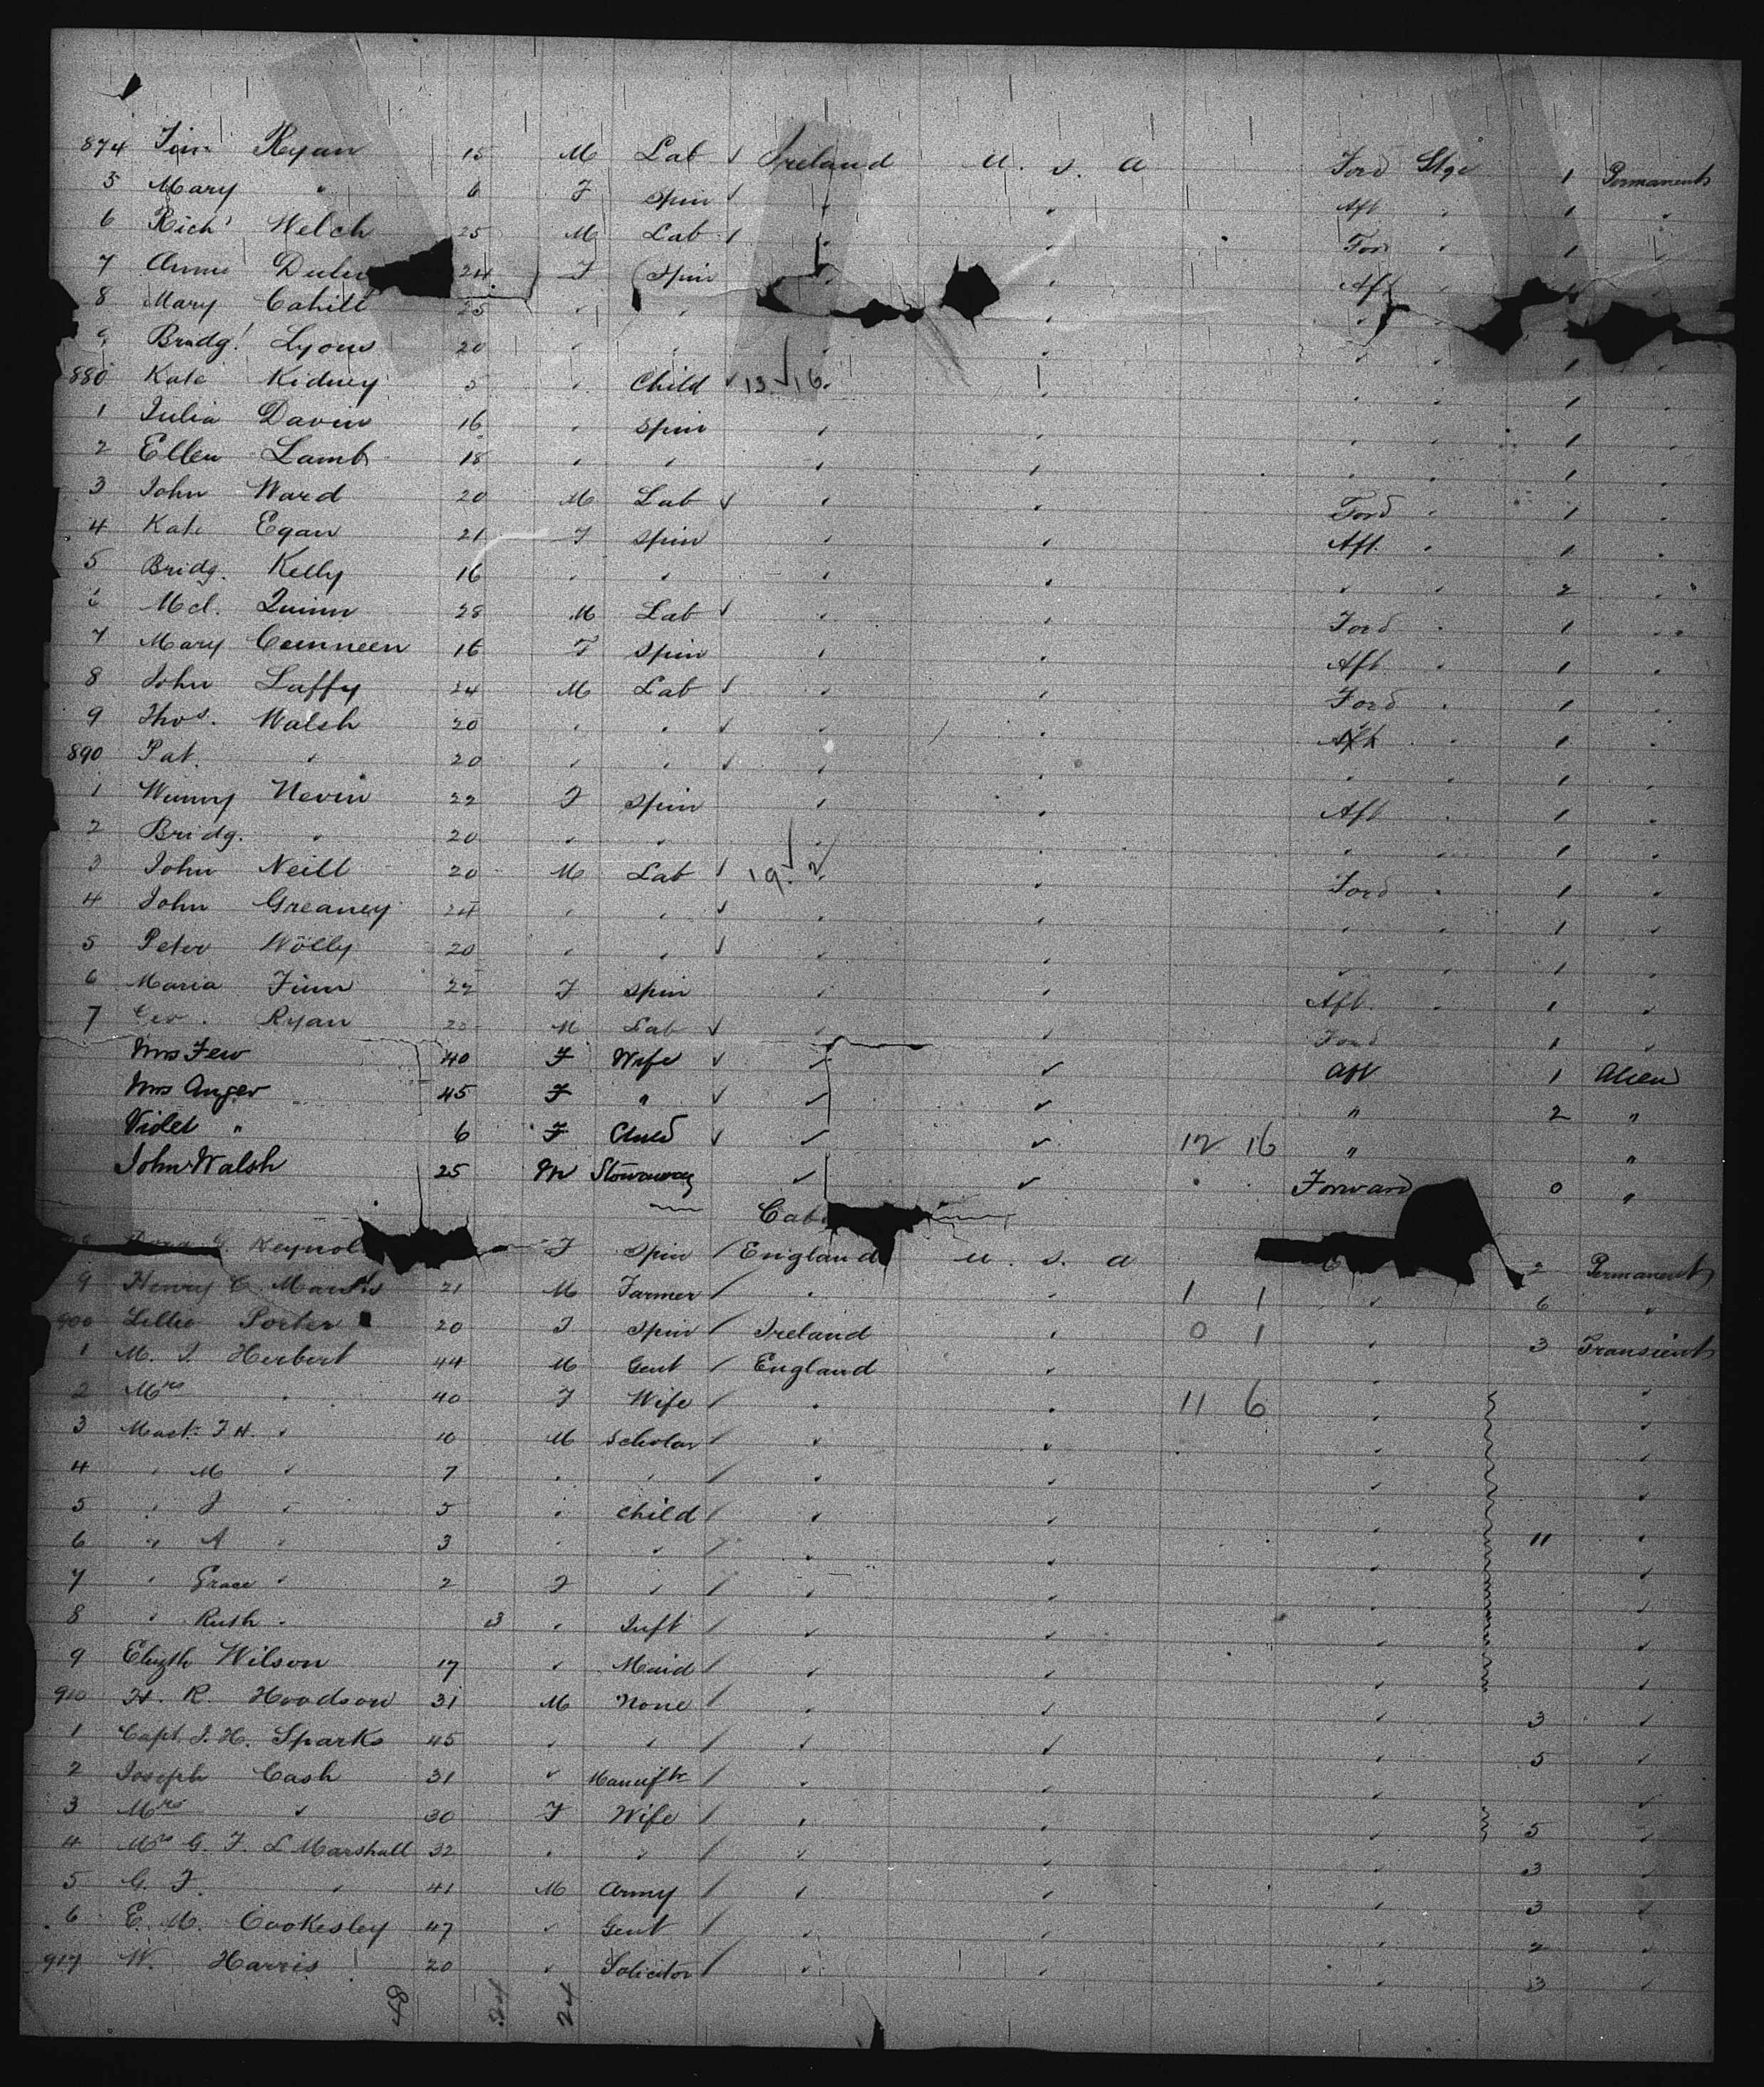 874 Tim Ryan 15 M Lab ✓ Ireland U. S. A Ford Stge 1 Permanent
5 Mary " 6 F Spin ✓ " " Aft " 1 "
6 Richd Welch 25 M Lab ✓ " " Ford " 1 "
7 Annie 24 F Spin " " Aft "
8 Mary Cahill 25 " " " "
9 Bridgt Lyons 20 " " " " " " 1 "
880 Kate Kidney 5 " Child ✓ 13 ✓ 16 " " " 1 "
1 Julia Davin 16 " Spin " " " " 1 "
2 Ellen Lamb 18 " " " " " " 1 "
3 John Ward 20 M Lab ✓ " " Ford " 1 "
4 Kate Egan 21 F Spin " " Aft " 1 "
5 Bridg. Kelly 16 " " " " " " 2 "
6 Mcl. Quinn 28 M Lab ✓ " " Ford " 1 "
7 Mary Cunneen 16 F Spin " " Aft " 1 "
8 John Laffy 24 M Lab ✓ " " Ford " 1 "
9 Thos. Walsh 20 " " ✓ " " " 1 "
890 Pat. " 20 " " ✓ " " " " 1 "
1 Winny Nevin 22 F Spin " " Aft " 1 "
2 Bridg. " 20 " " " " " " 1 "
3 John Neill 20 M Lab ✓ 19 ✓ 2 " Ford " 1 "
4 John Greaney 24 " " ✓ " " " " 1 "
5 Peter Wolly 20 " " ✓ " " " " 1 "
6 Maria Finn 22 F Spin " " Aft. " 1 "
7 Geo. Ryan 20 M Lab ✓ " " Ford 1 "
Mrs Few 40 F Wife ✓ " " Aft 1 Alien
Mrs Anger 45 F " ✓ " " " 2 "
Violet " 6 F Child ✓ " " 12 16 " "
John Walsh 25 M Stowaway " " Forward 0 "
Cab
G. Reynol F Spin / England U. S. A 2 Permanent
9 Henry C. 21 M Farmer / " " 1 1 " 6 "
900 Lillie Porter 20 F Spin / Ireland " 0 1 " 3 Transient
1 M. J. Herbert 44 M Gent / England " " "
2 Mrs " 40 F Wife / " " 11 6 " "
3 Mast. F H. " 10 M Scholar / " " " "
4 " M " 7 " " / " " " "
5 " J " 5 " Child / " " " "
6 " A " 3 " " / " " " 11 "
7 " Grace " 2 F " / " " " "
8 " Ruth " 3 " Inft / " " " "
9 Elizth Wilson 17 " Maid / " " " "
910 H. R. Hoodson 31 M None / " " " 3 "
1 Capt. J. H. Sparks 45 " " / " " " 5 "
2 Joseph Cash 31 " Manuftr / " " " "
3 Mrs " 30 F Wife / " " " 5 "
4 Mrs G. F. L Marshall 32 " " / " " " 3 "
5 G. F. " 41 M Army / " " " 3 "
6 E. M. Cookesley 47 " Gent / " " " 2 "
917 W. Harris 20 " Solicitor / " " " 3 "
48 24 24